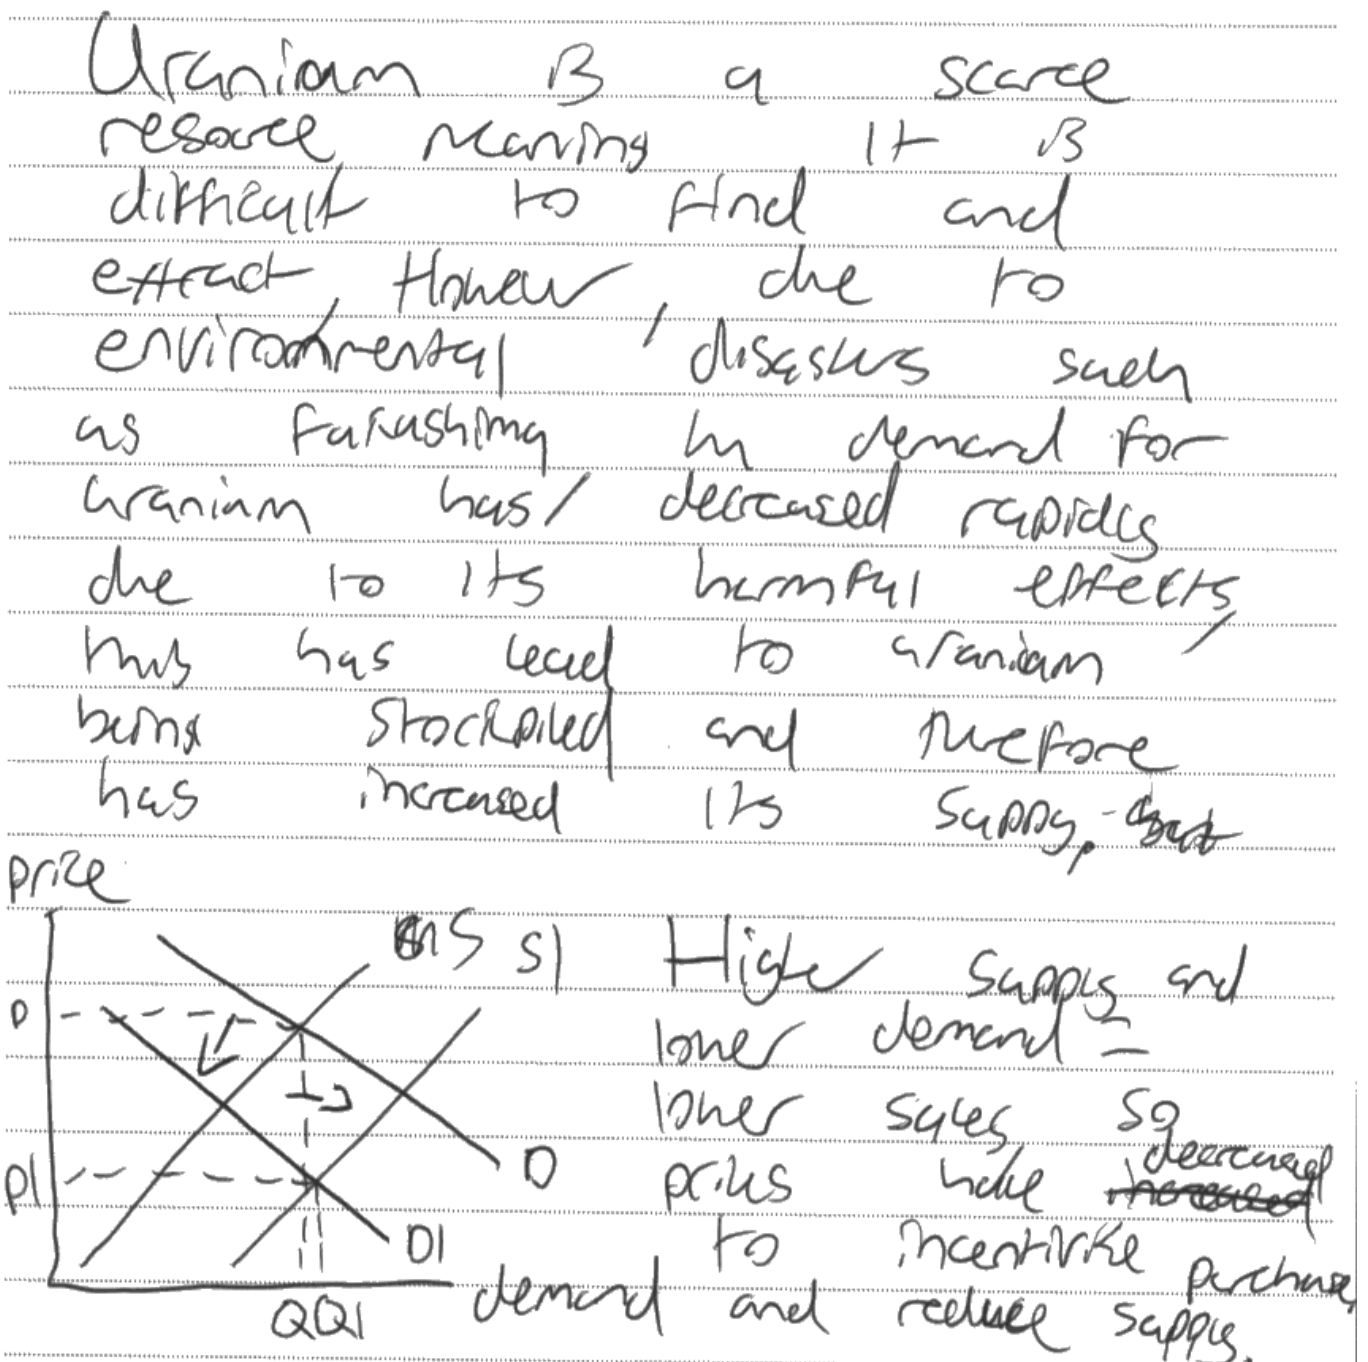 Uranium is a scarce
resource meaning it is
difficult to find and
extract, However, due to
environmental disasters such
as Fukushima demand for
uranium has decreased rapidly
due to its harmful effects,
this has lead to uranium
being stockpiled and therefore
has increased its supply.
price
S S1
P
P1
D
D1
Q Q1
Higher supply and
lower demand =
lower sales so
prices have decreased
to incentivise purchase,
demand and reduce supply.